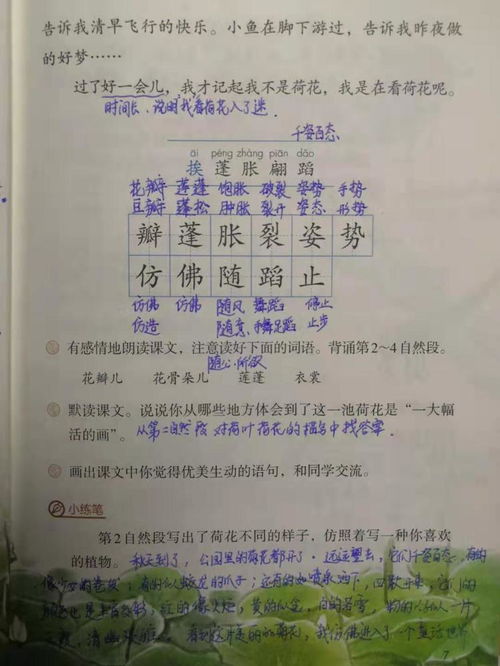 告诉我清早飞行的快乐。小鱼在脚下游过，告诉我昨夜做
的好梦……
过了好一会儿，我才记起我不是荷花，我是在看荷花呢。
时间长、说明我看荷花入了迷。
千姿百态
āi péng zhàng piān dǎo
挨 蓬 胀 翩 蹈
花瓣 莲蓬 饱胀 破裂 姿势 手势
豆瓣 蓬松 肿胀 裂开 姿态 形势
瓣 蓬 胀 裂 姿 势
仿 佛 随 蹈 止
仿佛 仿佛 随风 舞蹈 停止
仿造 随意 手舞足蹈 止步
随心所欲
有感情地朗读课文，注意读好下面的词语。背诵第2~4自然段。
花瓣儿 花骨朵儿 莲蓬 衣裳
默读课文。说说你从哪些地方体会到了这一池荷花是“一大幅
活的画”。从第二自然段对荷叶荷花的描写中找答案.
画出课文中你觉得优美生动的语句，和同学交流。
小练笔
第2自然段写出了荷花不同的样子，仿照着写一种你喜欢
的植物。秋天到了，公园里的菊花都开了。远远望去，它们千姿百态，有的
像少女的卷发；有的似蛟龙的爪子；还有的如喷泉洒下，四散开来，它们的
颜色也是，红的像火焰，黄的似金，白的若雪，粉的
看到这片美丽的菊花，我仿佛进入了一个童话世界
7